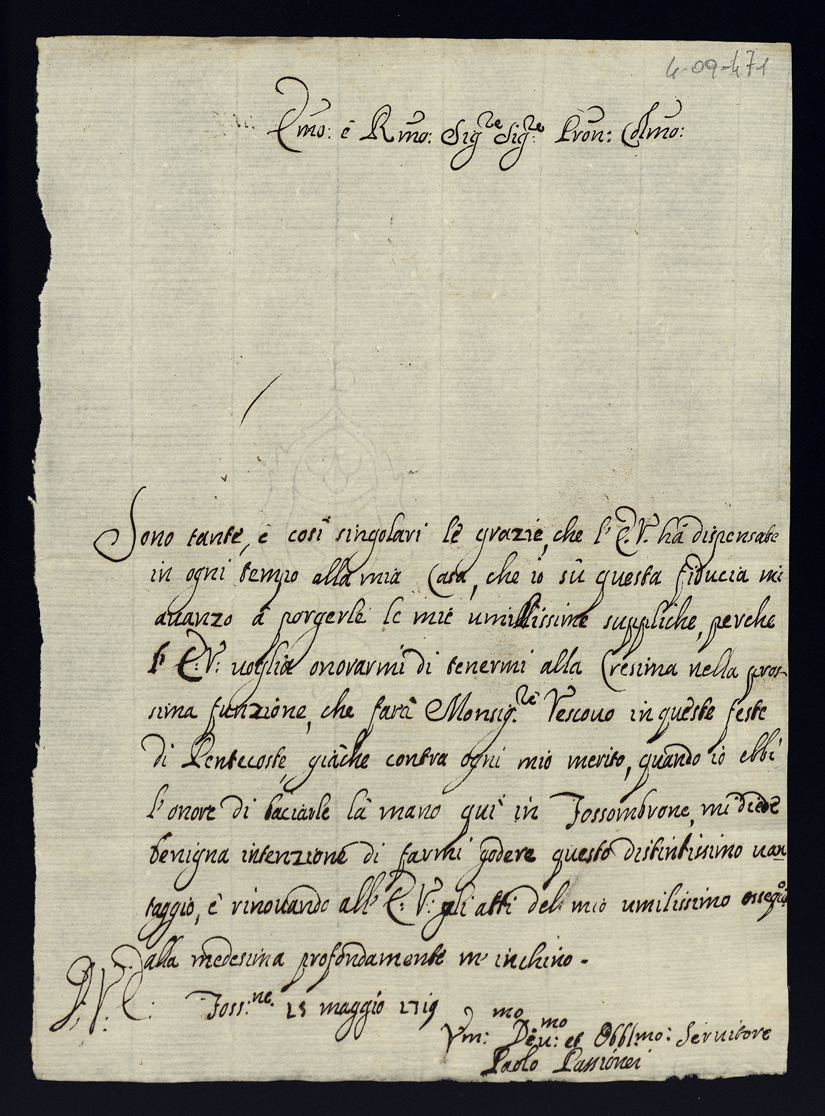 4-09-471
Emo: e Rmo: Sigre Sigre Pron: Colmo:
Sono tante, e così singolari le grazie, che l'E.V. hà dispensate
in ogni tempo alla mia Casa, che io sù questa fiducia mi
auanzo à porgerle le mie umilissime suppliche, perche
l'E.V. uoglia onorarmi di tenermi alla Cresima nella pros-
sima funzione, che farà Monsigre Vescouo in queste feste
di Pentecoste, giàche contra ogni mio merito, quando io ebbi
l'onore di baciarle la mano quì in Fossombrone, mi diede
benigna intenzione di farmi godere questo distintissimo uan-
taggio, e rinouando all'E.V. gli atti del mio umilissimo ossegio
dalla medesima profondamente m'inchino.
Foss:ne 15 maggio 1719
Vm:mo Deu:mo et Obblmo: Seruitore
Paolo Passionei